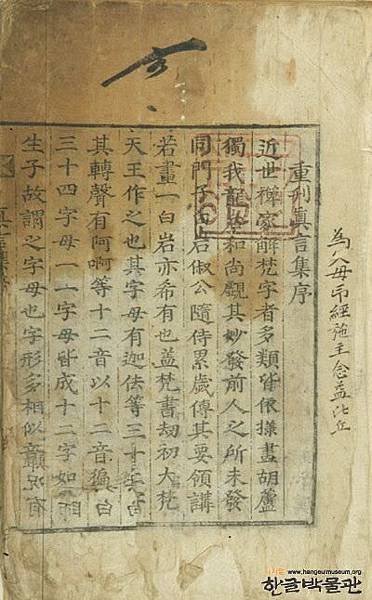 為父母印經施主念益比丘
重刊眞言集序
近世禪家解梵字者多類皆依樣畫胡蘆
獨我龍巖和尚覷其妙發前人之所未發
同門子白岩俶公隨侍累歲傳其要領講
若畫一白岩亦希有也盖梵書劫初大梵
天王作之也其字母有迦佉等三十
其轉聲有阿啊等十二音以十二音徧
三十四字母一一字母皆成十二字如
生子故謂之字母也字形多相似
www.hangeulmuseum.org
한글박물관